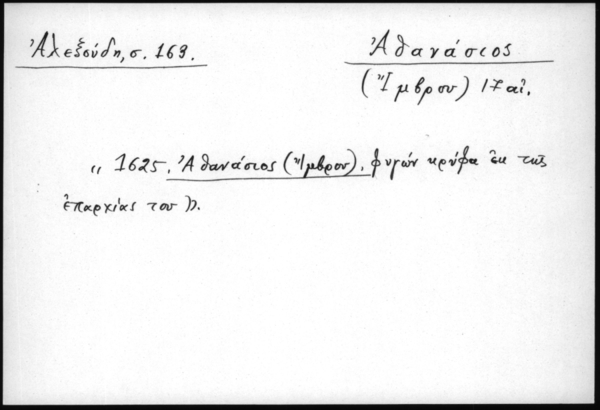 Ἀλεξούδη, σ. 169.
Ἀθανάσιος
(Ἴμβρου) 17 αἰ.
„ 1625, Ἀθανάσιος (Ἴμβρου), φυγών κρύφα ἐκ τῆς
ἐπαρχίας του ».